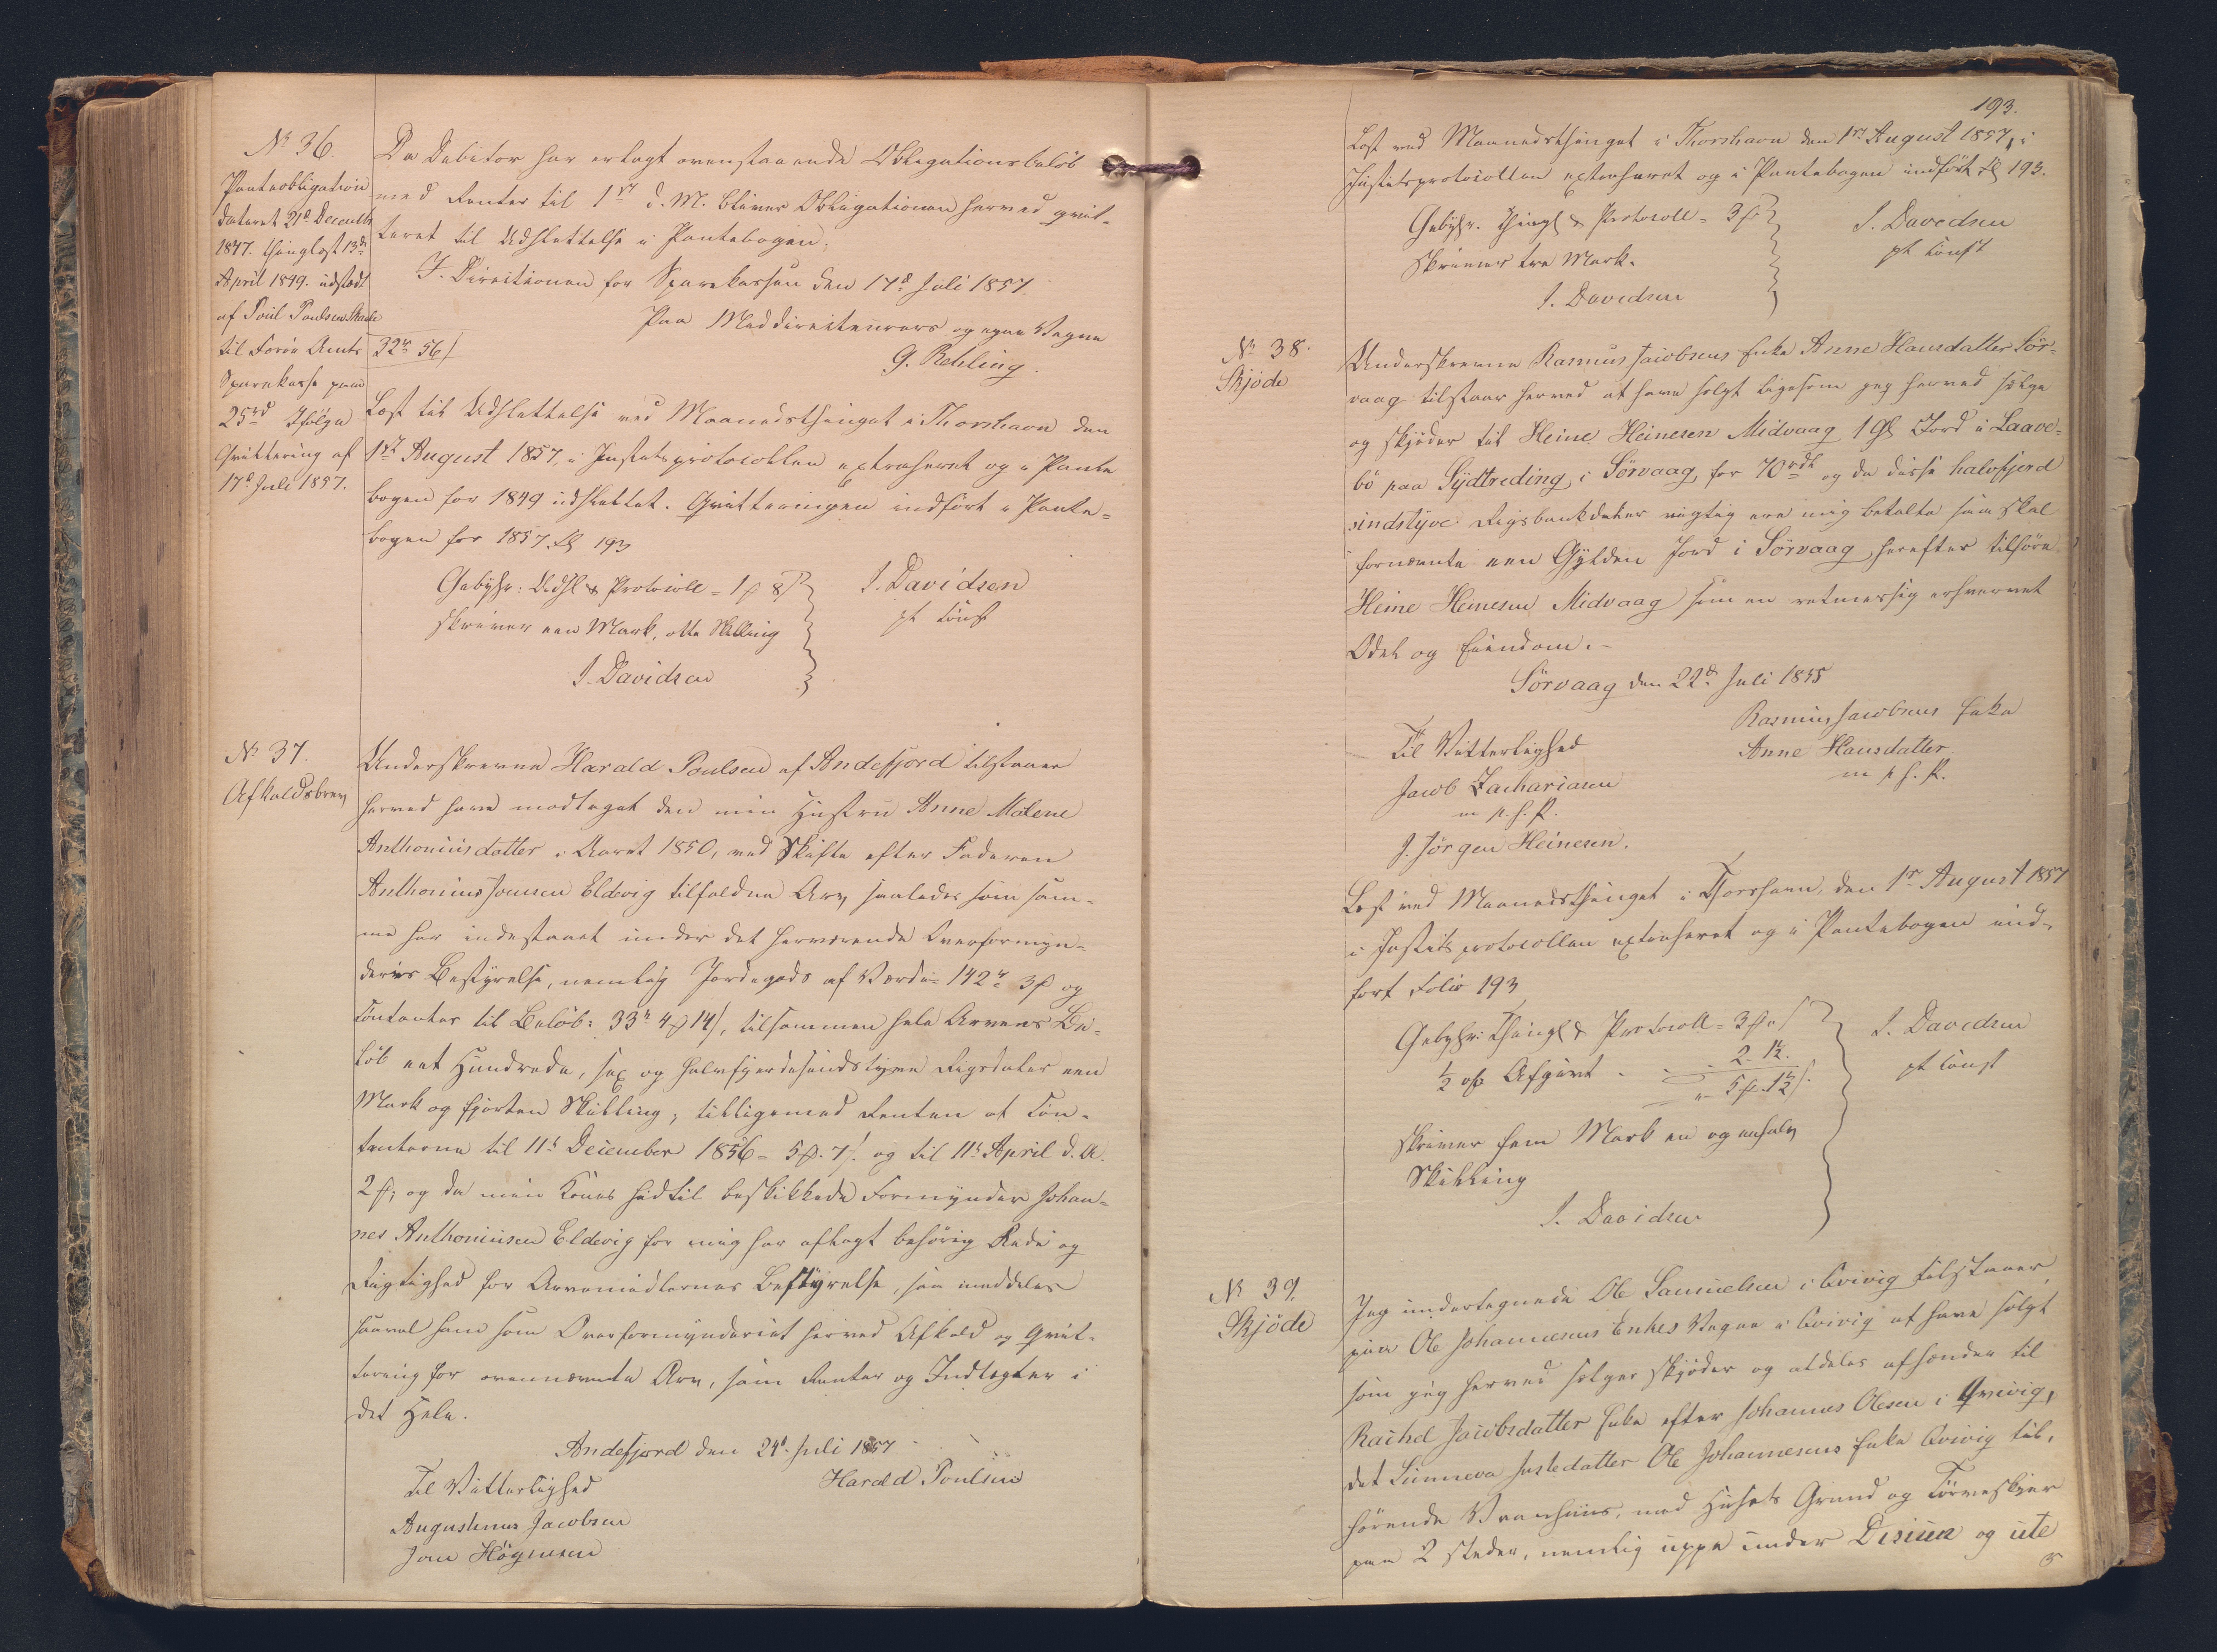 No 36.
Panteobligation
dateret 21d Decembr
1847. thinglæst 13de
April 1849. udstædt
af Poul Poulsen Skaale
til Færöe Amts
Sparekasse paa
25rd Ifölge
Qvittering af
17d Juli 1857.
Da Debitor har erlagt ovenstaaende Obligationsbelöb
med Renter til 1st d. M. bliver Obligationen herved qvit-
teret til Udslettelse i Pantebogen.
I Directionen for Sparekassen den 17d Juli 1857.
Paa Meddirecteurers og egne Vegne
32rd 56/
G. Rehling.
Læst til Udslettelse ved Maanedsthinget i Thorshavn den
1st August 1857, i Justitsprotocollen extraheret og i Pante
bogen for 1849 udslettet. Qvitteringen indfört i Pante-
bogen for 1857. fol 193
Gebyhr: Udsl & Protocoll = 1 8
skriver een Mark, otte Skilling
J. Davidsen
J. Davidsen
pt const
No 37.
Afkaldsbrev
Underskrevne Harald Poulsen af Andefjord tilstaaer
herved have modtaget den min Hustru Anne Malene
Anthoniusdatter i Aaret 1850, ved Skifte efter Faderen
Anthonius Joensen Eldevig tilfaldne Arv, saaledes som sam-
me har indestaaet under det herværende Overformyn-
deries Bestyrelse, nemlig Jordegods af Værdie 142rd 3 og
Contanter til Belöb: 33rd 4 14/, tilsammen hele Arvens Be-
löb eet Hundrede, sex og halvfjerdesindstyve Rigsdaler een
Mark og fjorten Skilling, tilligemed Renten af Con-
tanterne til 11te December 1856 = 5. 7/. og til 11te April d. A.
2, og da min Kones hidtil beskikkede Formynder Johan-
nes Anthoniusen Eldevig for mig har aflagt behörig Rede og
Rigtighed for Arvemidlernes Bestyrelse, saa meddeles
saavel ham som Overformynderiet herved Afkald og Qvit-
tering for ovennævnte Arv, samt Renter og Indtægter i
det Hele.
Andefjord den 24d Juli 1857
Til Vitterlighed
Harald Poulsen
Augustinus Jacobsen
Joen Högnesen
193.
Læst ved Maanedsthinget i Thorshavn den 1st August 1857, i
Justitsprotocollen extraheret og i Pantebogen indfört fol 193.
Gebyhr. Thingl & Protocoll = 3
skriver tre Mark.
J. Davidsen
J. Davidsen
pt const
No 38.
Skjöde
Underskrevne Rasmus Jacobsens Enke Anne Hansdatter Sör-
vaag tilstaar herved at have solgt ligesom jeg herved sælge
og skjöder til Heine Heinesen Midvaag 1 Gl Jord i Laave-
bö paa Sydtreding i Sörvaag, for 70rdl og da disse halvfjerd
sindstyve Rigsbankdaler rigtig ere mig betalte saa skal
fornævnte een Gylden Jord i Sörvaag herefter tilhöre
Heine Heinesen Midvaag som en retmæssig erhvervet
Odel og Eiendom.-
Sörvaag den 22d Juli 1855
Rasmus Jacobsens Enke
Til Vitterlighed
Anne Hansdatter
m p. h. P.
Jacob Zachariasen
m p. h. P.
J. Jörgen Heinesen.
Læst ved Maanedsthinget i Thorshavn, den 1st August 1857
i Justitsprotocollen extraheret og i Pantebogen ind-
fört Folio 193
Gebyhr: Thingl & Protocoll = 3
½ % Afgivt . . . 2. 1½.
5. 1½/.
skriver fem Mark en og enhalv
Skilling
J. Davidsen
J. Davidsen
pt const
No 39.
Skjöde
Jeg undertegnede Ole Samuelsen i Qvivig tilstaaer
paa Ole Johannesens Enkes Vegne i Qvivig at have solgt
som jeg herved sælger skjöder og aldeles afhænder til
Rachel Jacobsdatter Enke efter Johannes Olesen i Qvivig,
det Sunneva Justedatter Ole Johannesens Enke Qvivig til-
hörende Vaanhuus, med Husets Grund og Törveskjær
paa 2 Steder, nemlig uppe under Disiun og ute